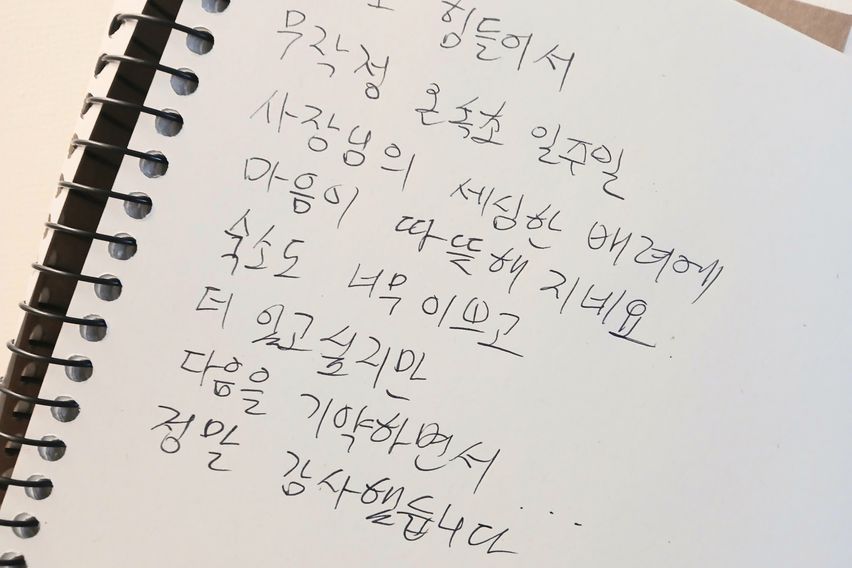 힘들어서
무작정 온속초 일주일
사장님의 세심한 배려에
마음이 따뜻해 지네요
숙소도 너무 이쁘고
더 있고 싶지만
다음을 기약하면서...
정말 감사했습니다